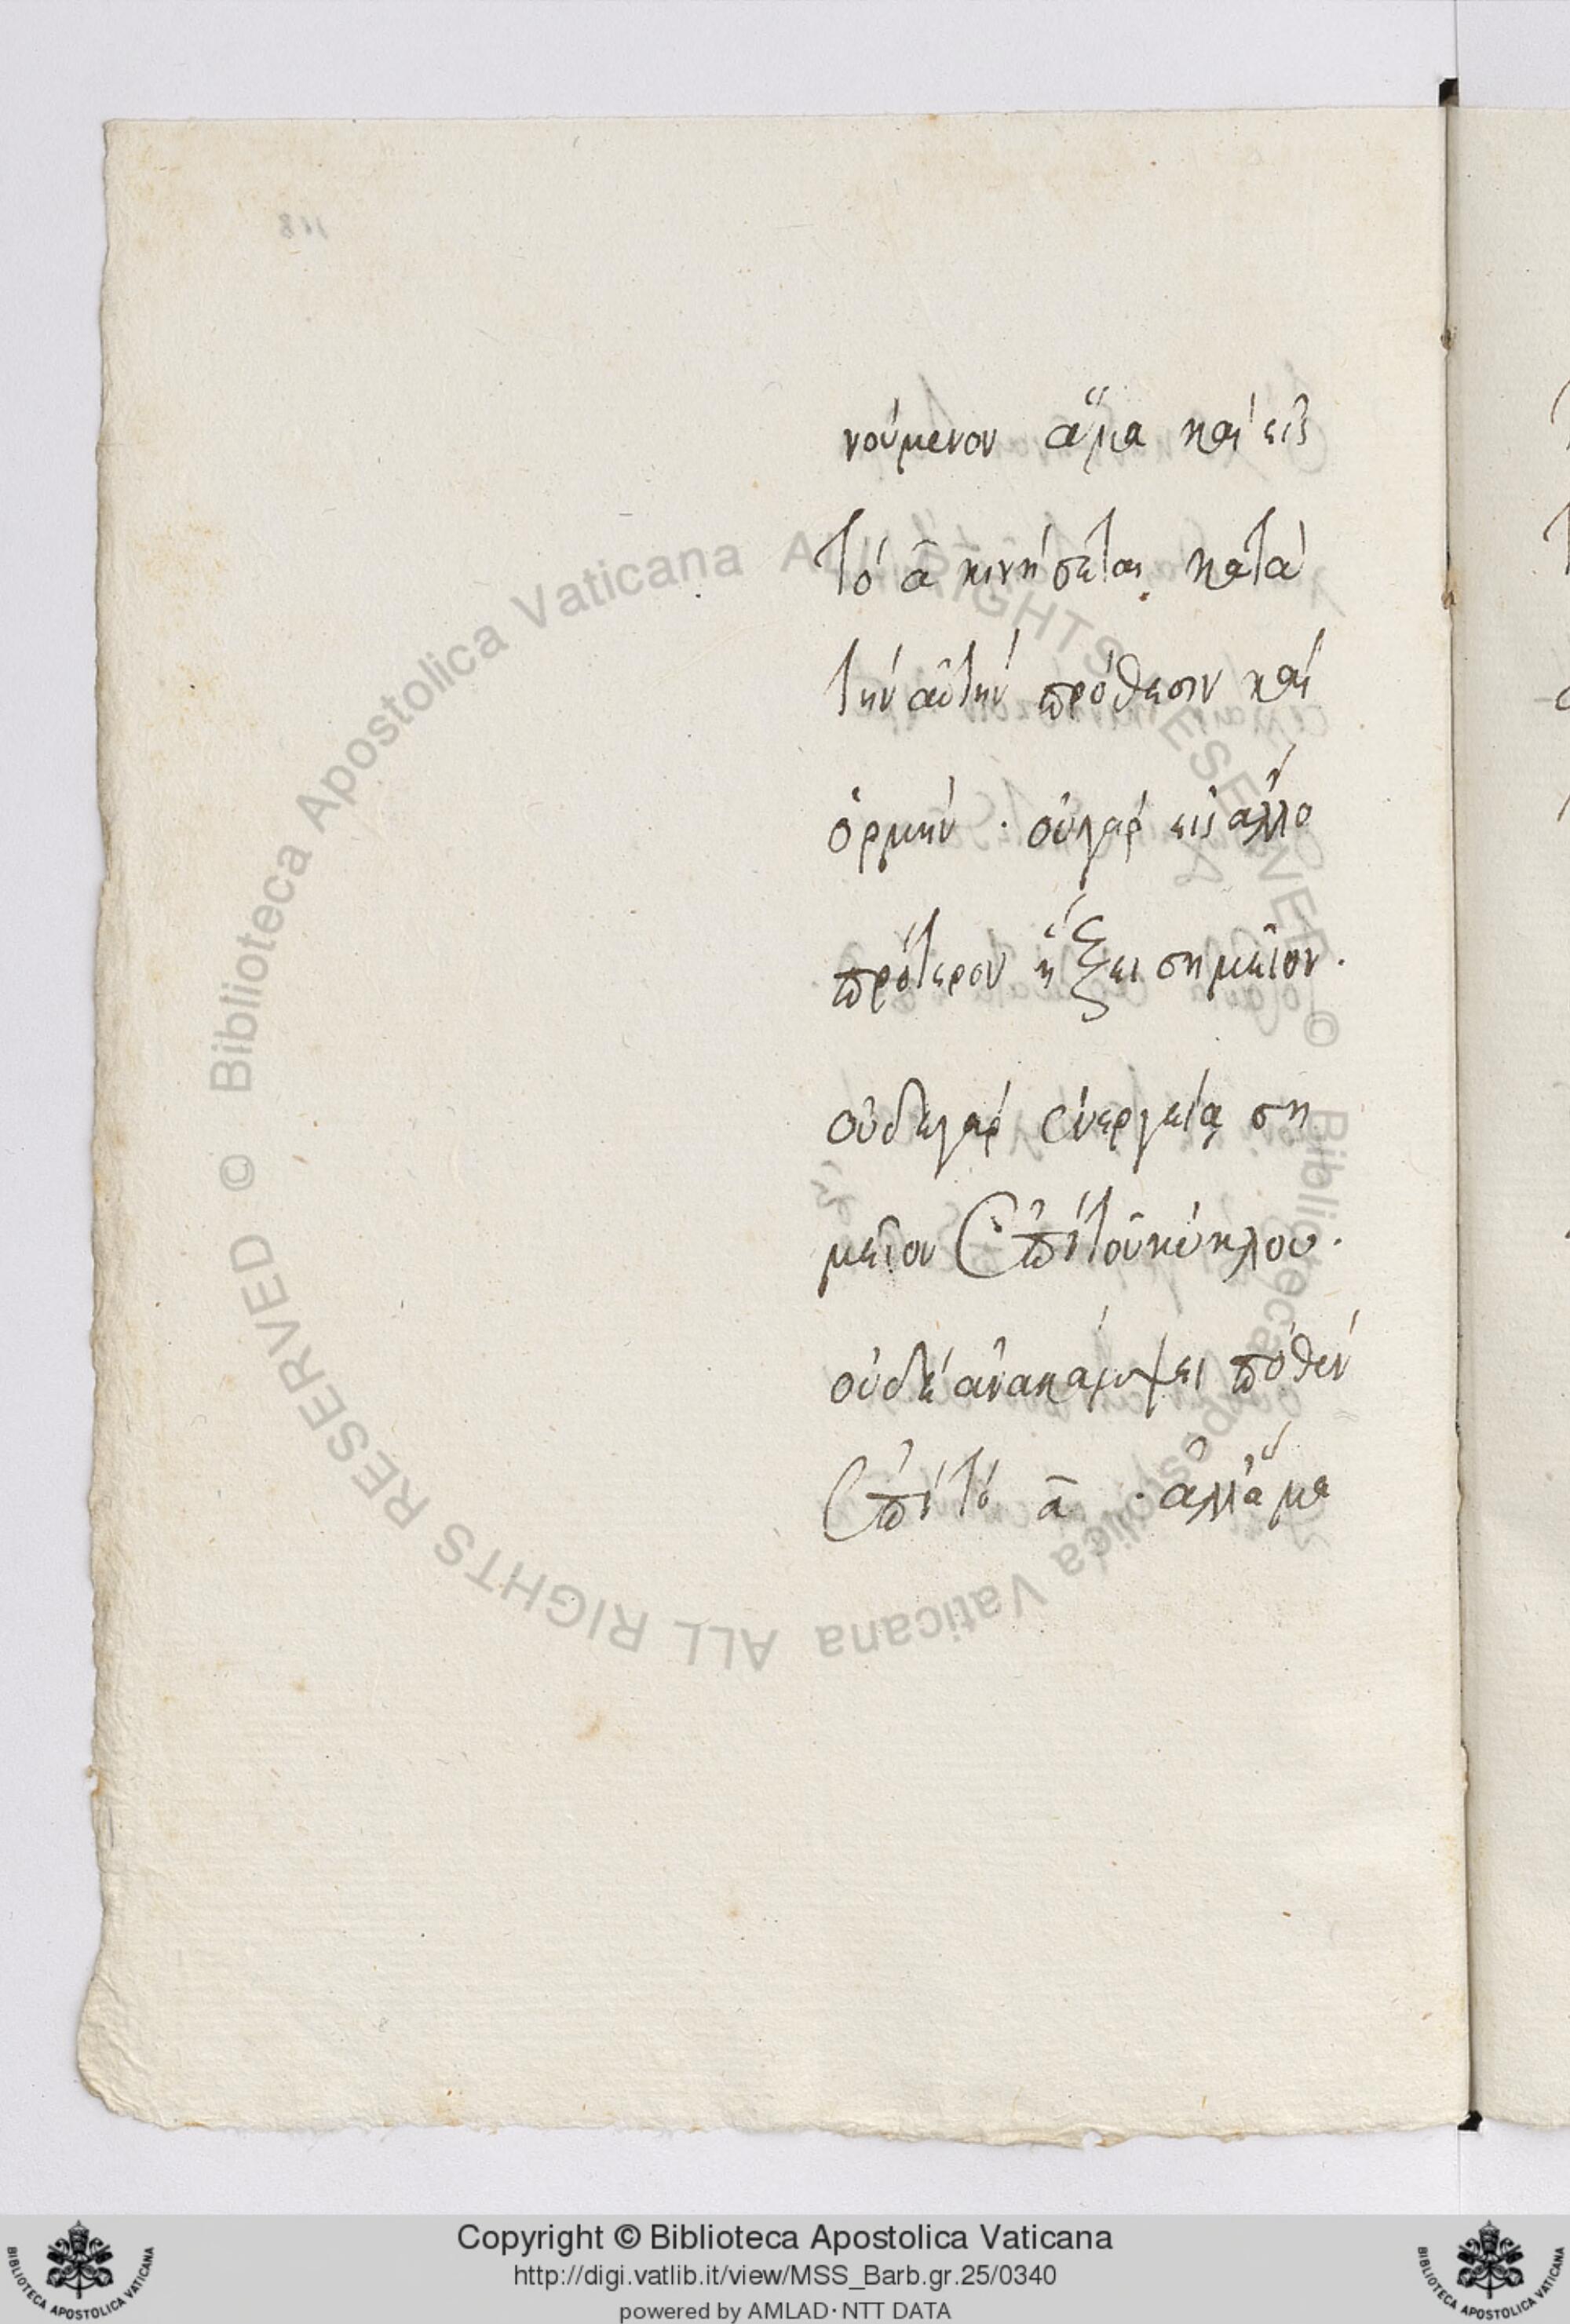 νούμενον ἅμα καὶ εἰς
τὸ ᾱ κινήσεται κατὰ
τὴν αὐτὴν πρόθεσιν καὶ
ὁρμήν · οὐ γὰρ εἰς ἄλλο
πρότερον ἥξει σημεῖον ·
οὐδὲ γὰρ ἐνεργείᾳ ση
μεῖον ἐπὶ τοῦ κύκλου ·
οὐδὲ ἀνακάμψει πόθεν
ἐπὶ τὸ ᾱ · ἀλλ' ἅμα
Biblioteca Apostolica Vaticana ALL RIGHTS RESERVED ©
Biblioteca Apostolica Vaticana ALL RIGHTS RESERVED ©
Copyright © Biblioteca Apostolica Vaticana
http://digi.vatlib.it/view/MSS_Barb.gr.25/0340
powered by AMLAD · NTT DATA
BIBLIOTECA APOSTOLICA VATICANA
BIBLIOTECA APOSTOLICA VATICANA